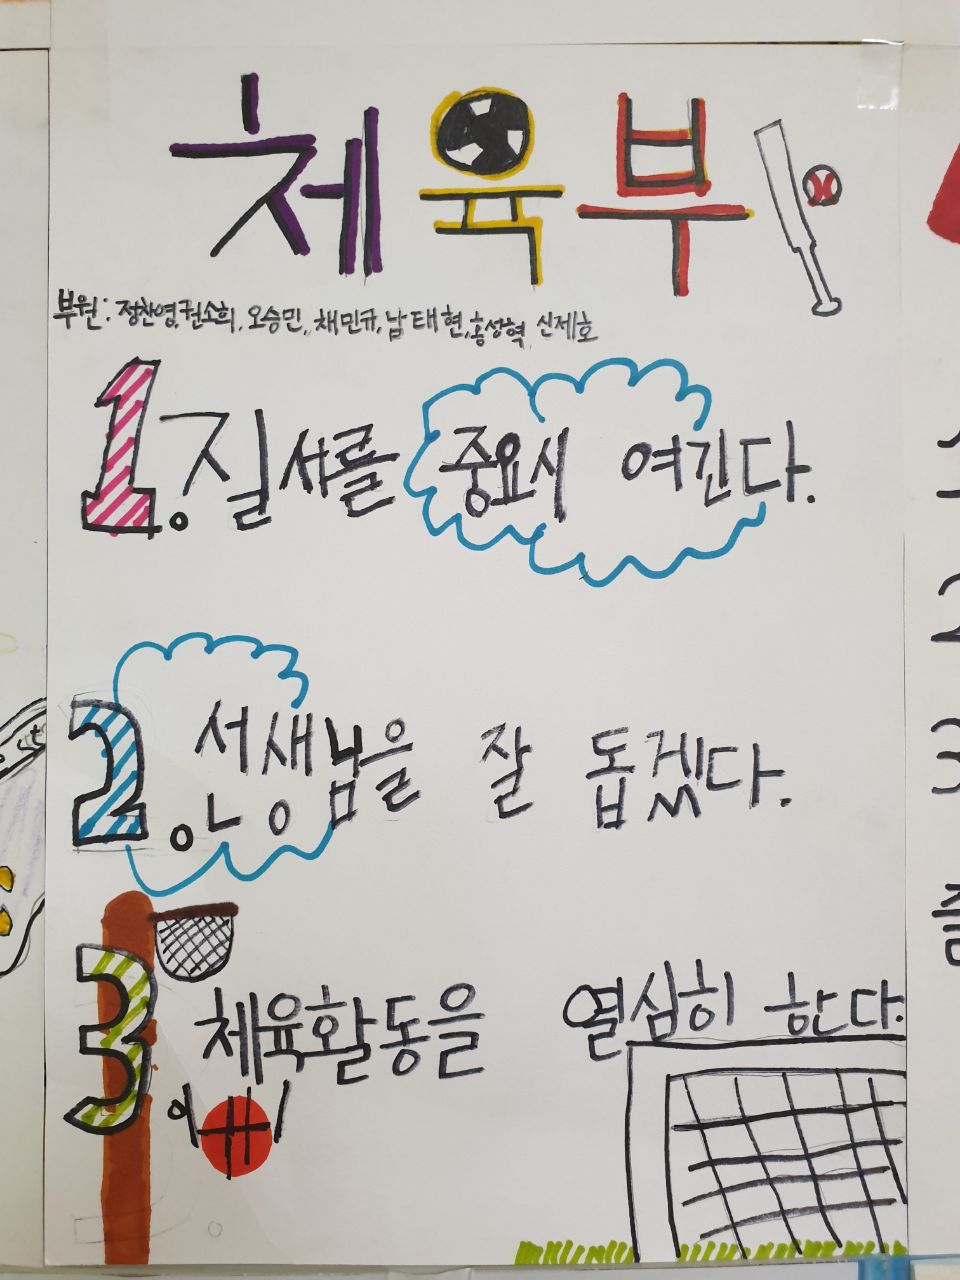 체육부
부원: 정찬영, 권소희, 오승민, 채민규, 남태현, 홍성혁, 신제호
1. 질서를 중요시 여긴다.
2. 선생님을 잘 돕겠다.
3 체육활동을 열심히 한다.